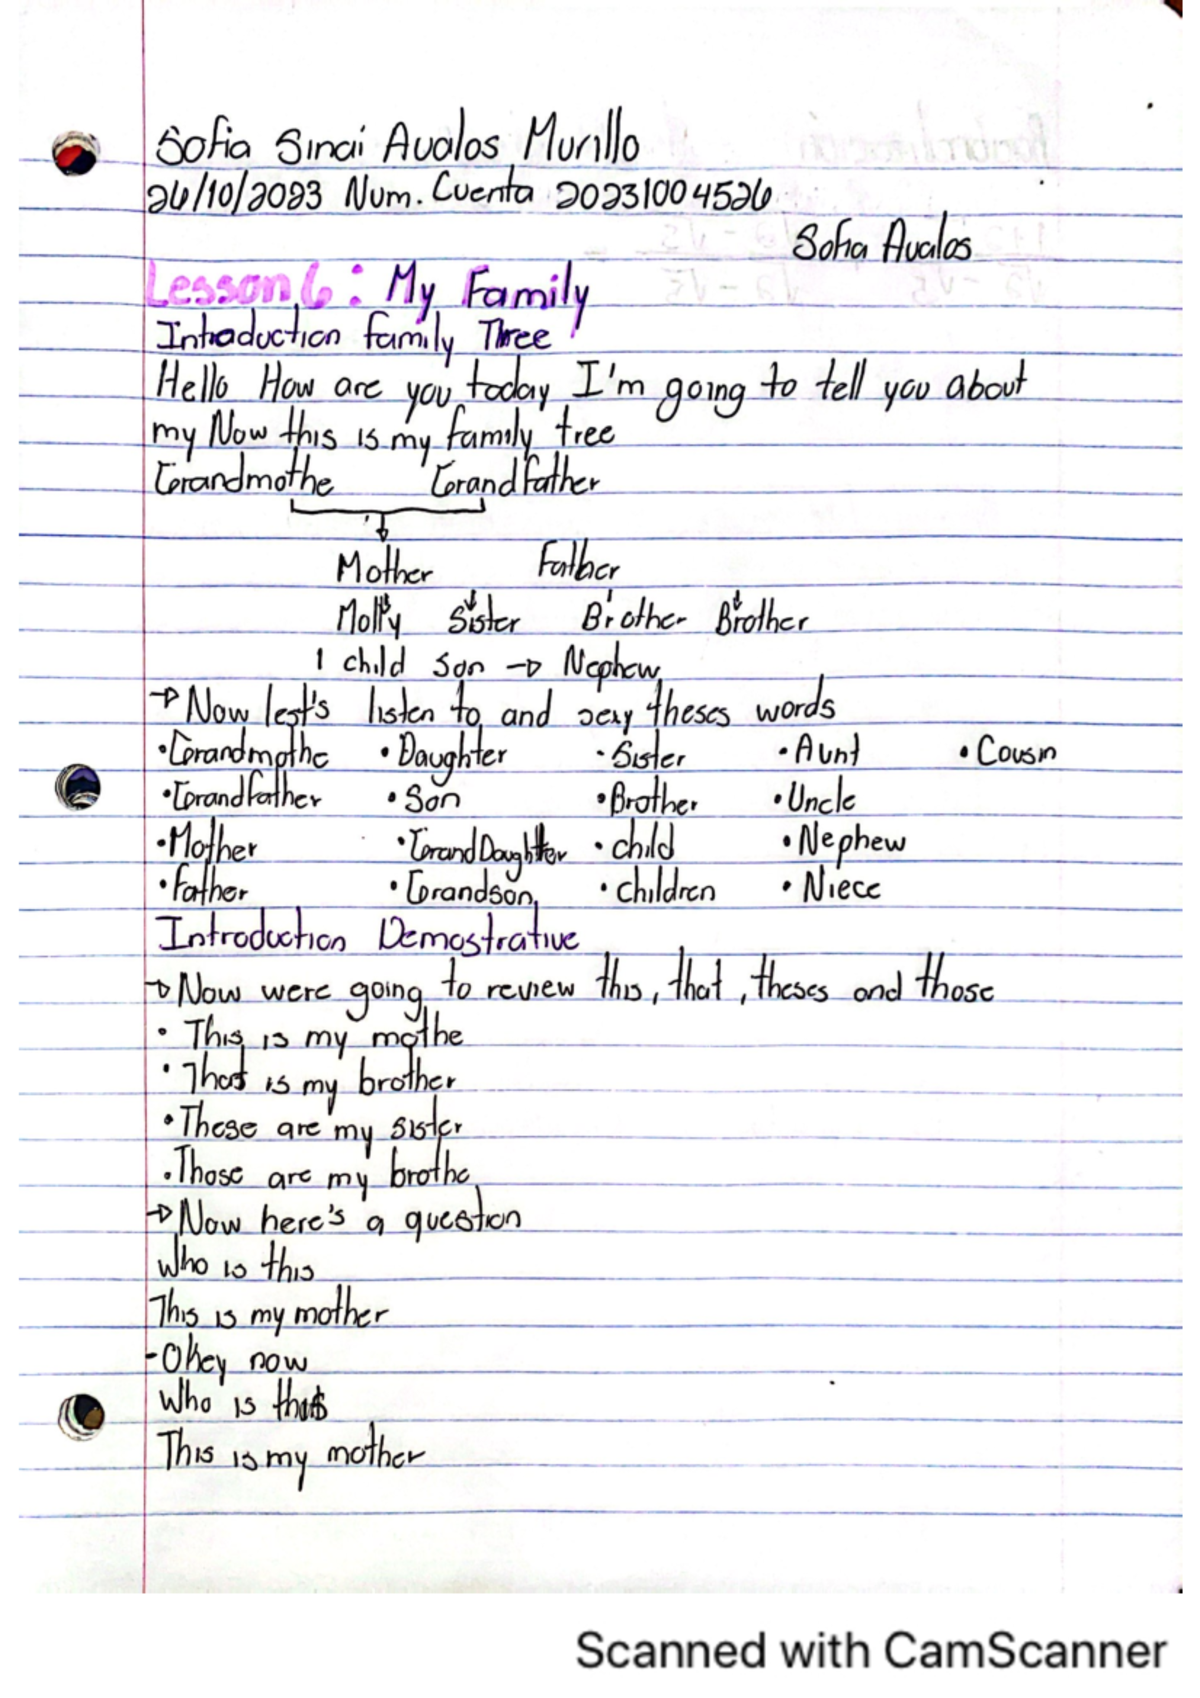 Sofia Sinai Avalos Murillo
26/10/2023 Num. Cuenta 20231004526
Sofia Avalos
Lesson 6: My Family
Introduction family Three
Hello How are you today I'm going to tell you about
my Now this is my family tree
Grandmothe Grandfather
Mother Father
Molly Sister Brother Brother
1 child son → Nephew
→ Now lest's listen to and sexy theses words
• Grandmothe • Daughter • Sister • Aunt • Cousin
• Grandfather • Son • Brother • Uncle
• Mother • GrandDaughter • child • Nephew
• Father • Grandson • children • Niece
Introduction Demostrative
→ Now were going to review this, that, theses and those
• This is my mothe
• That is my brother
• These are my sister
• Those are my brothe
→ Now here's a question
Who is this
This is my mother
- Okey now
Who is that
This is my mother
Scanned with CamScanner